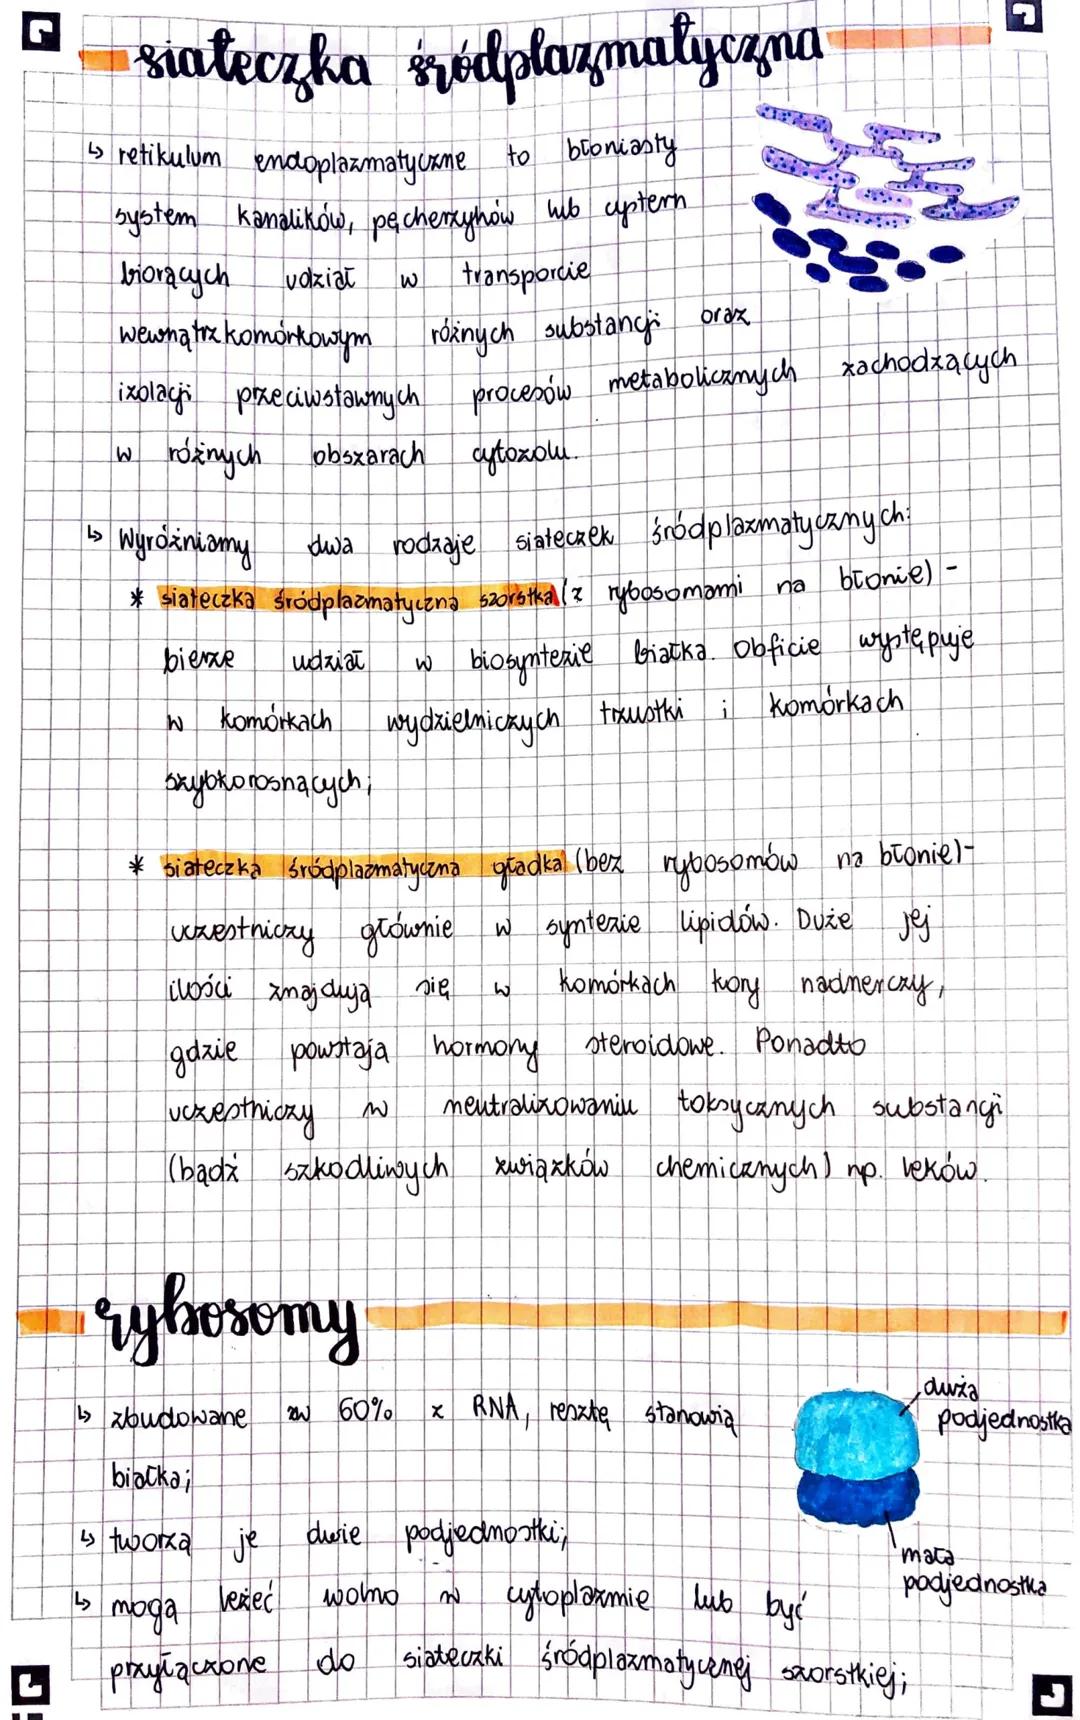 siateczka śródplazmatyczna
↳ retikulum endoplazmatyczne to błoniasty
system kanalików, pęcherzyków lub cystern
biorących udział w transporcie
wewnątrzkomórkowym różnych substancji oraz
izolacji przeciwstawnych procesów metabolicznych zachodzących
w różnych obszarach cytozolu.
↳ Wyróżniamy dwa rodzaje siateczek śródplazmatycznych:
* siateczka śródplazmatyczna szorstka (z rybosomami na błonie) -
bierze udział w biosyntezie białka. Obficie występuje
w komórkach wydzielniczych trzustki i komórkach
szybkorosnących;
* siateczka śródplazmatyczna gładka (bez rybosomów na błonie) -
uczestniczy głównie w syntezie lipidów. Duże jej
ilości znajdują się w komórkach kory nadnerczy,
gdzie powstają hormony steroidowe. Ponadto
uczestniczy w neutralizowaniu toksycznych substancji
(bądź szkodliwych związków chemicznych) np. leków.
rybosomy
↳ zbudowane w 60% z RNA, resztę stanowią
białka;
↳ tworzą je dwie podjednostki;
↳ mogą leżeć wolno w cytoplazmie lub być
przyłączone do siateczki śródplazmatycznej szorstkiej;
duża
podjednostka
mała
podjednostka